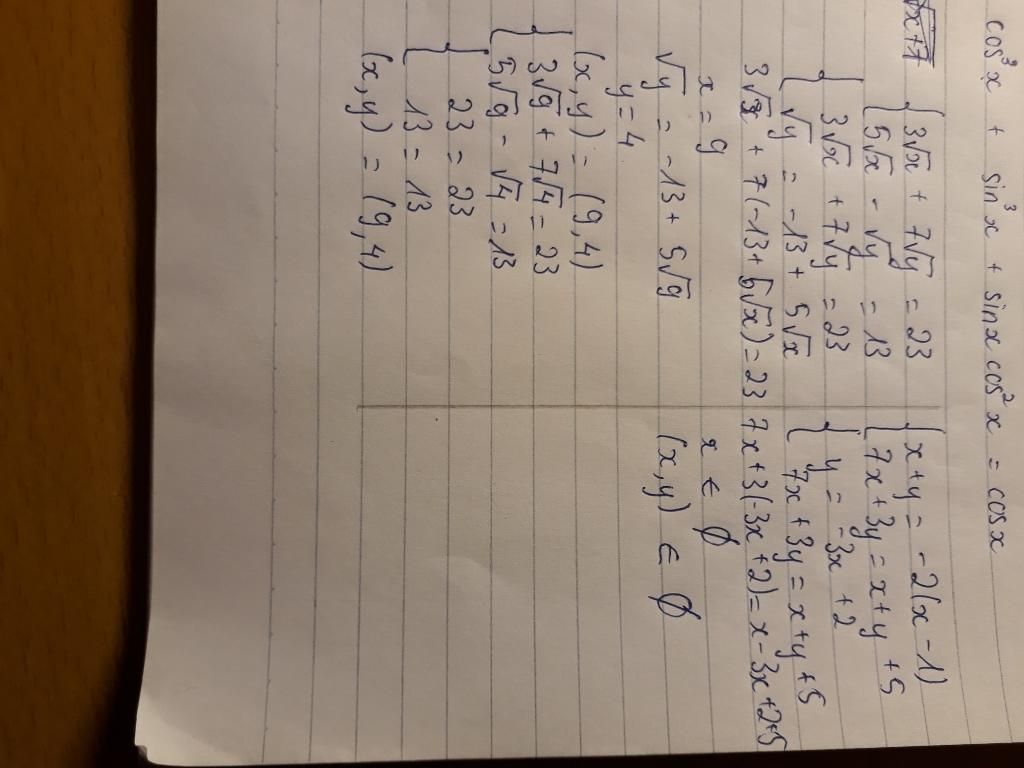 cos³x + sin³x + sinx cos²x = cosx
√x+7
{ 3√x + 7√y = 23
{ 5√x - √y = 13
{ 3√x + 7√y = 23
{ √y = -13 + 5√x
3√x + 7(-13 + 5√x) = 23
x = 9
√y = -13 + 5√9
y = 4
(x,y) = (9,4)
{ 3√9 + 7√4 = 23
{ 5√9 - √4 = 13
{ 23 = 23
{ 13 = 13
(x,y) = (9,4)
{ x+y = -2(x-1)
{ 7x+3y = x+y+5
{ y = -3x+2
{ 7x+3y = x+y+5
7x+3(-3x+2) = x-3x+2+5
x ∈ ∅
(x,y) ∈ ∅